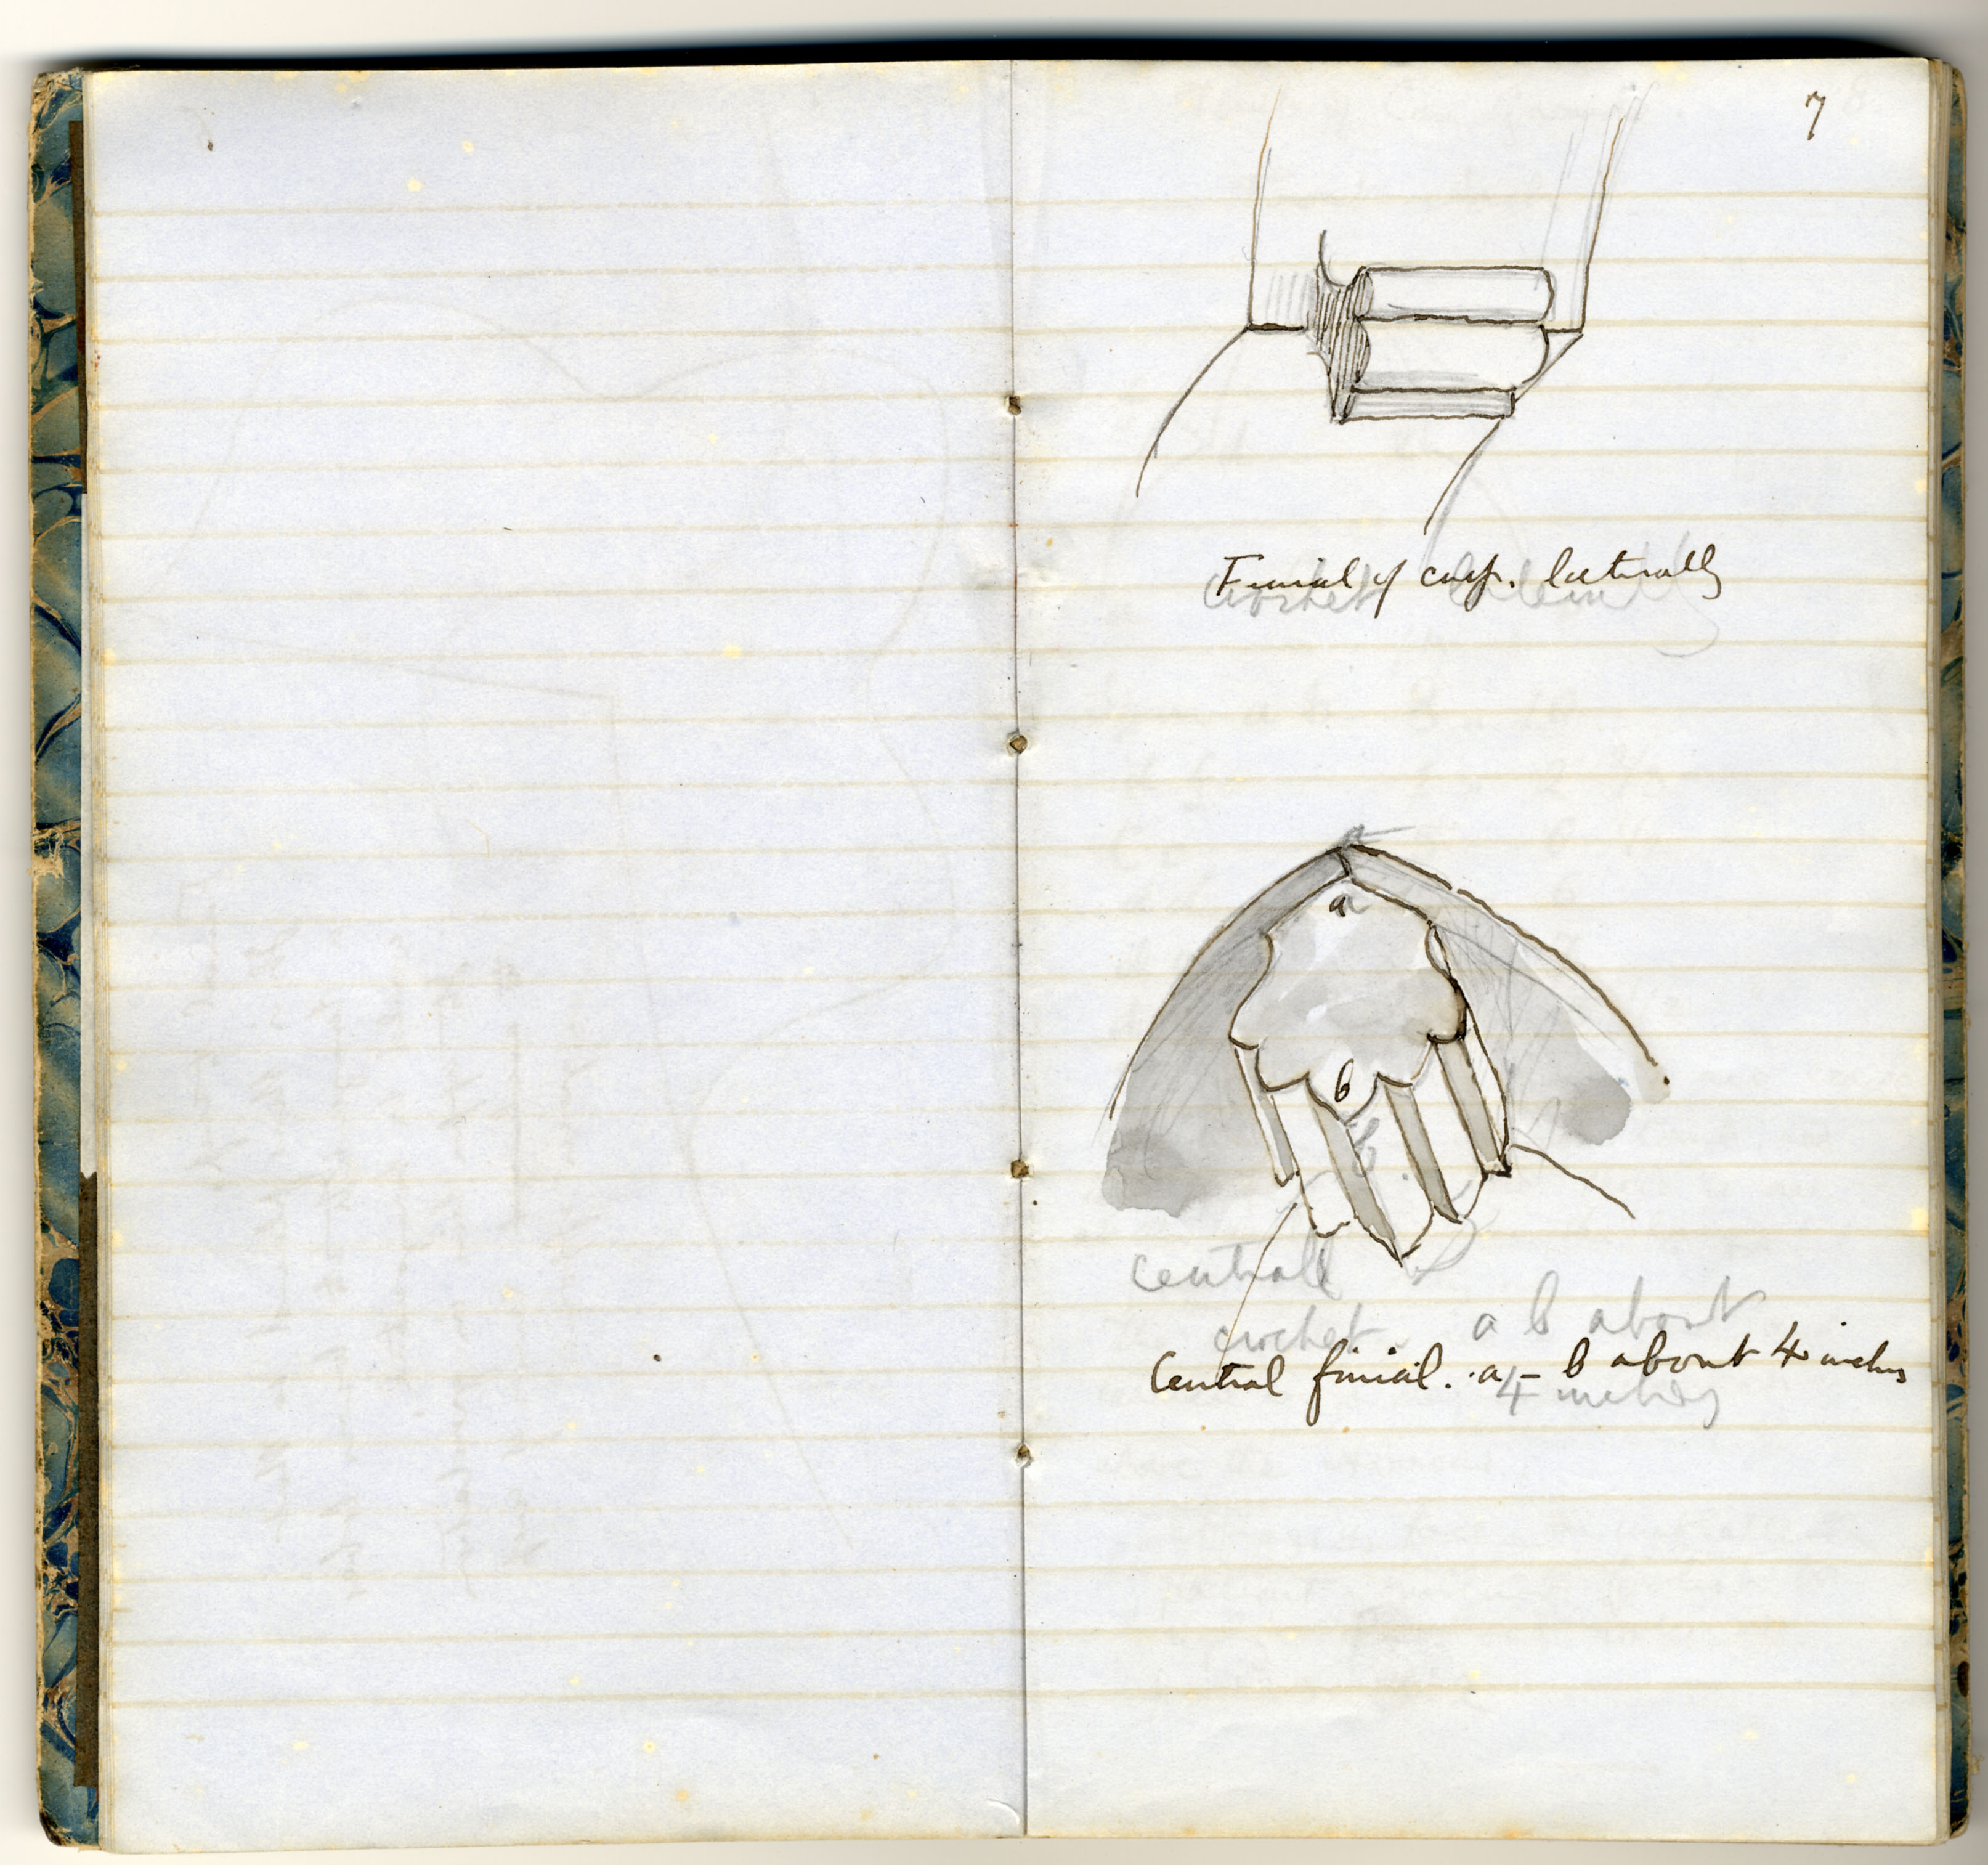 7
Finial of cusp. laterally
crochet laterally
a
b
b
centrall
crochet. a b about
Central finial. a - b about 4 inches
4 inches